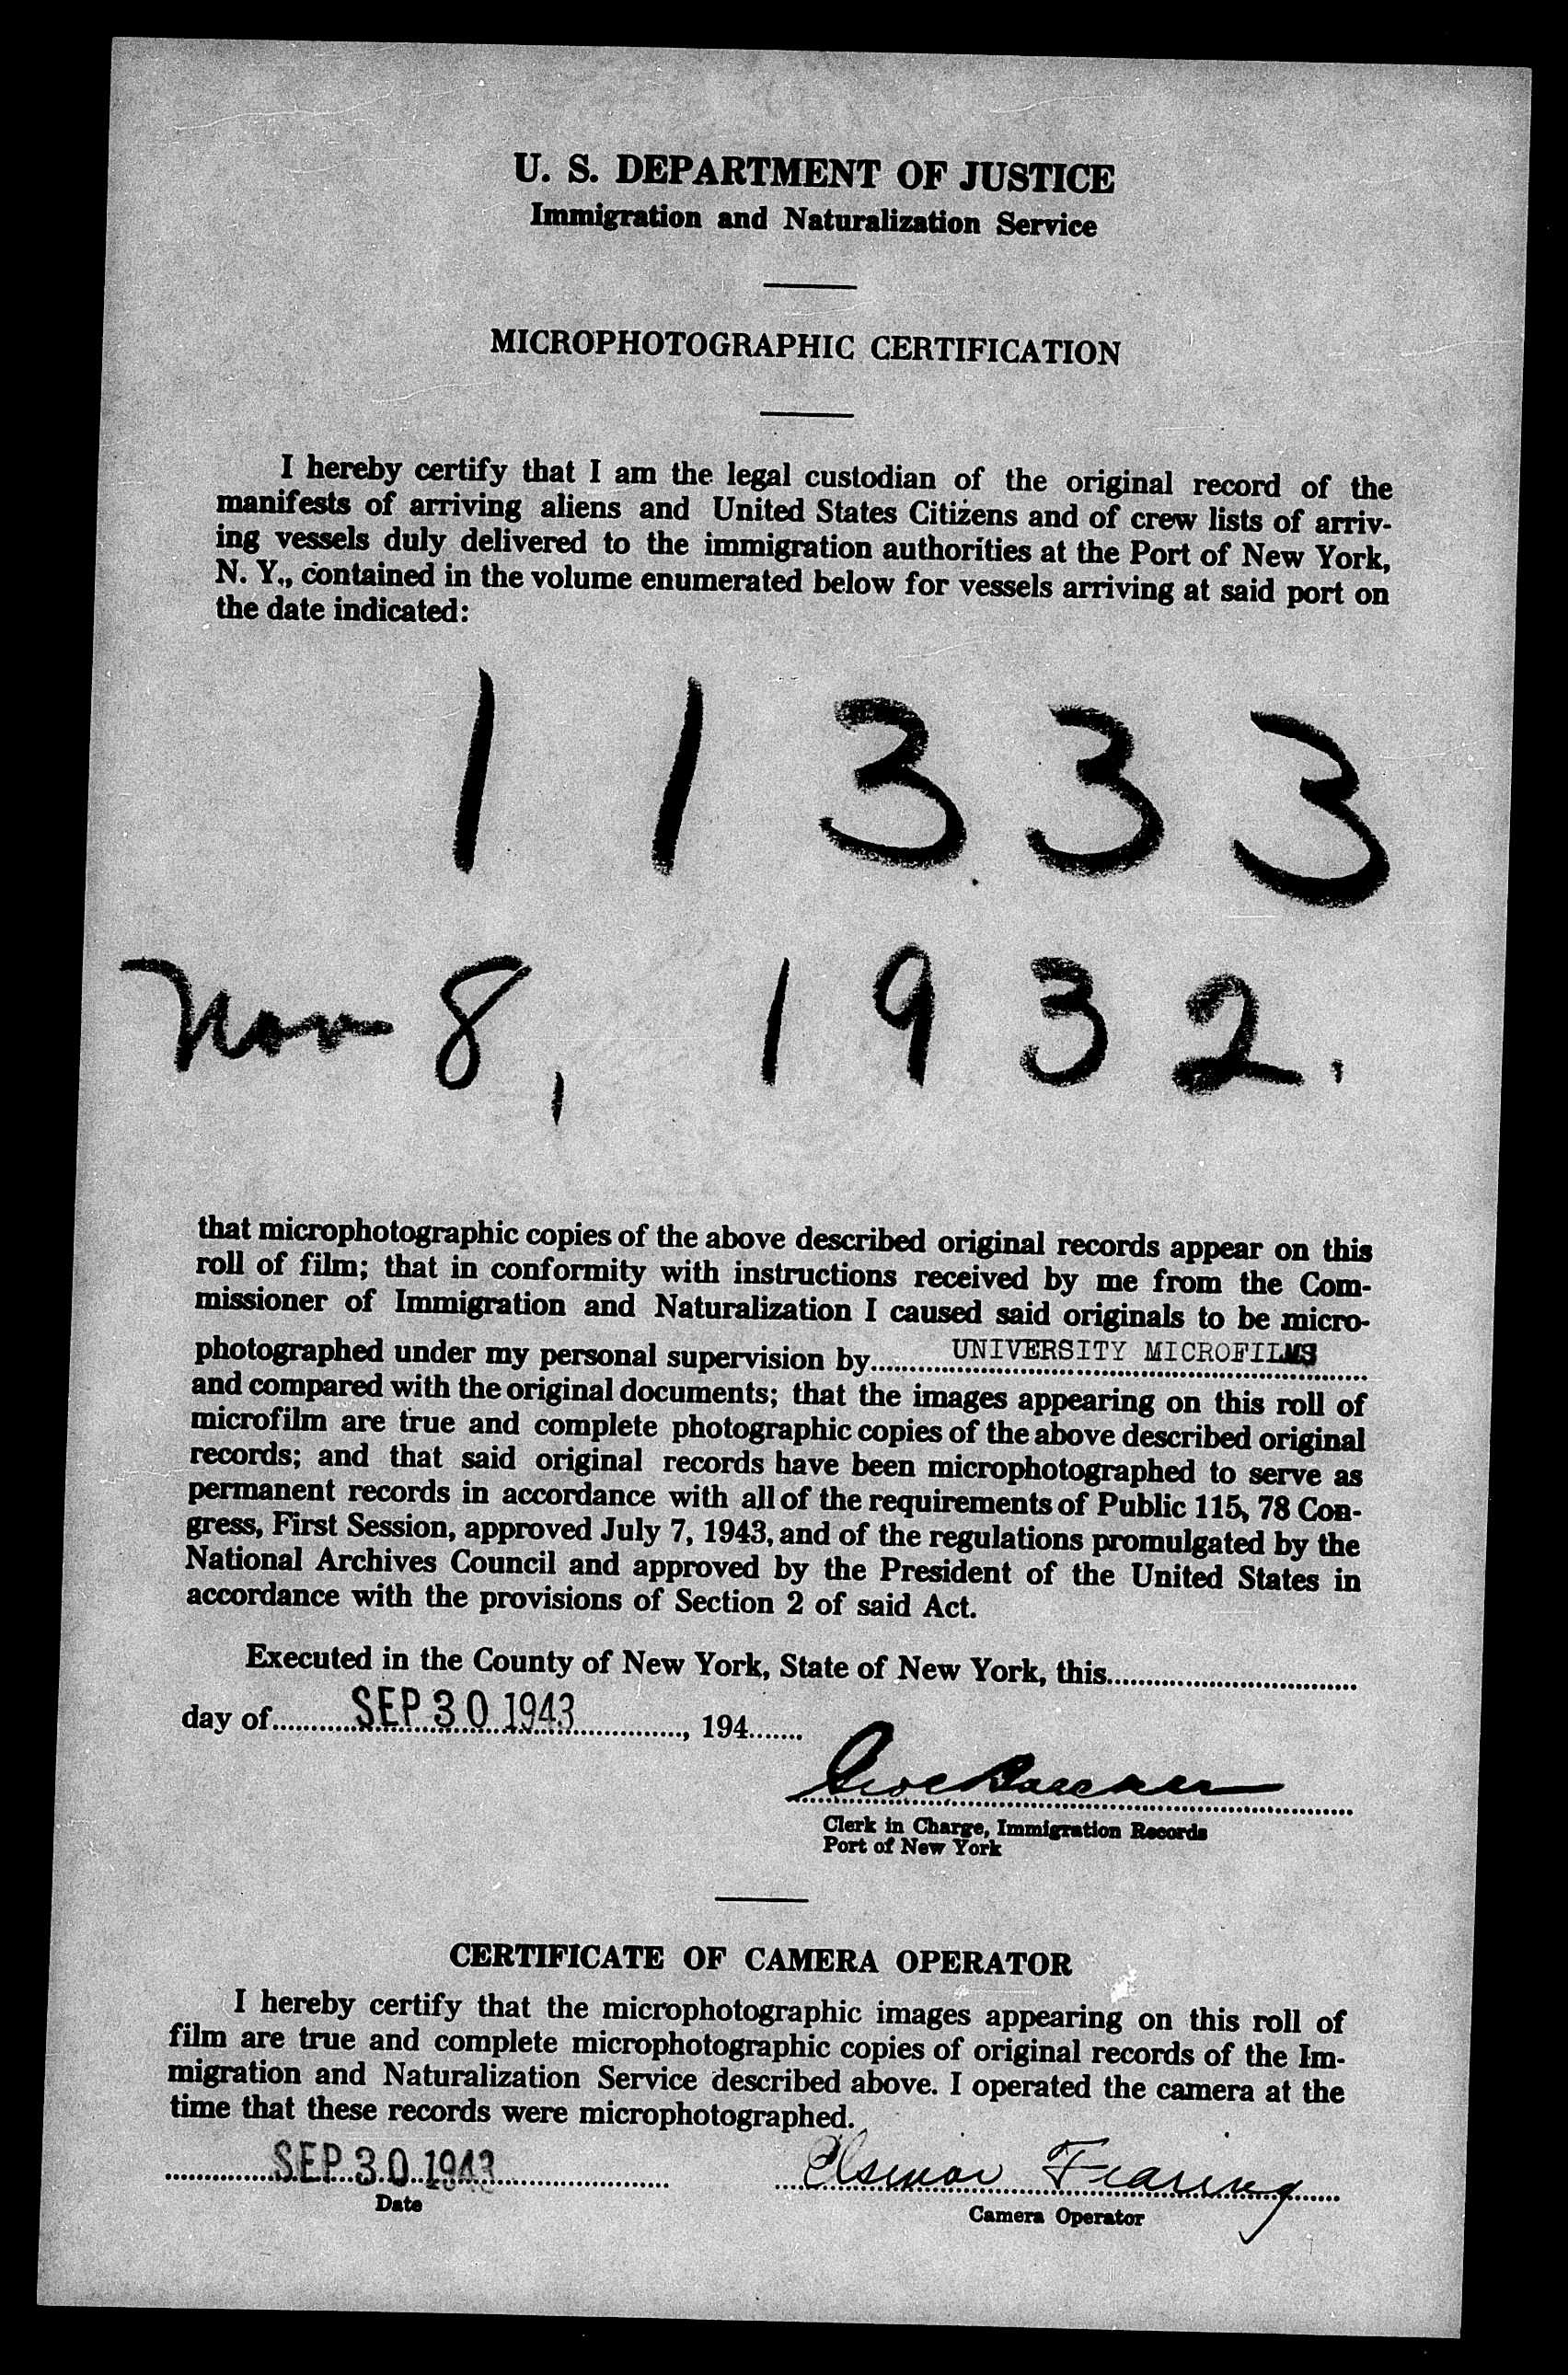 U. S. DEPARTMENT OF JUSTICE
Immigration and Naturalization Service
MICROPHOTOGRAPHIC CERTIFICATION
I hereby certify that I am the legal custodian of the original record of the
manifests of arriving aliens and United States Citizens and of crew lists of arriv-
ing vessels duly delivered to the immigration authorities at the Port of New York,
N. Y., contained in the volume enumerated below for vessels arriving at said port on
the date indicated:
11333
Nov 8, 1932.
that microphotographic copies of the above described original records appear on this
roll of film; that in conformity with instructions received by me from the Com-
missioner of Immigration and Naturalization I caused said originals to be micro-
photographed under my personal supervision by UNIVERSITY MICROFILMS
and compared with the original documents; that the images appearing on this roll of
microfilm are true and complete photographic copies of the above described original
records; and that said original records have been microphotographed to serve as
permanent records in accordance with all of the requirements of Public 115, 78 Con-
gress, First Session, approved July 7, 1943, and of the regulations promulgated by the
National Archives Council and approved by the President of the United States in
accordance with the provisions of Section 2 of said Act.
Executed in the County of New York, State of New York, this
day of SEP 30 1943, 194
Clerk in Charge, Immigration Records
Port of New York
CERTIFICATE OF CAMERA OPERATOR
I hereby certify that the microphotographic images appearing on this roll of
film are true and complete microphotographic copies of original records of the Im-
migration and Naturalization Service described above. I operated the camera at the
time that these records were microphotographed.
SEP 30 1943 Fearing
Date Camera Operator